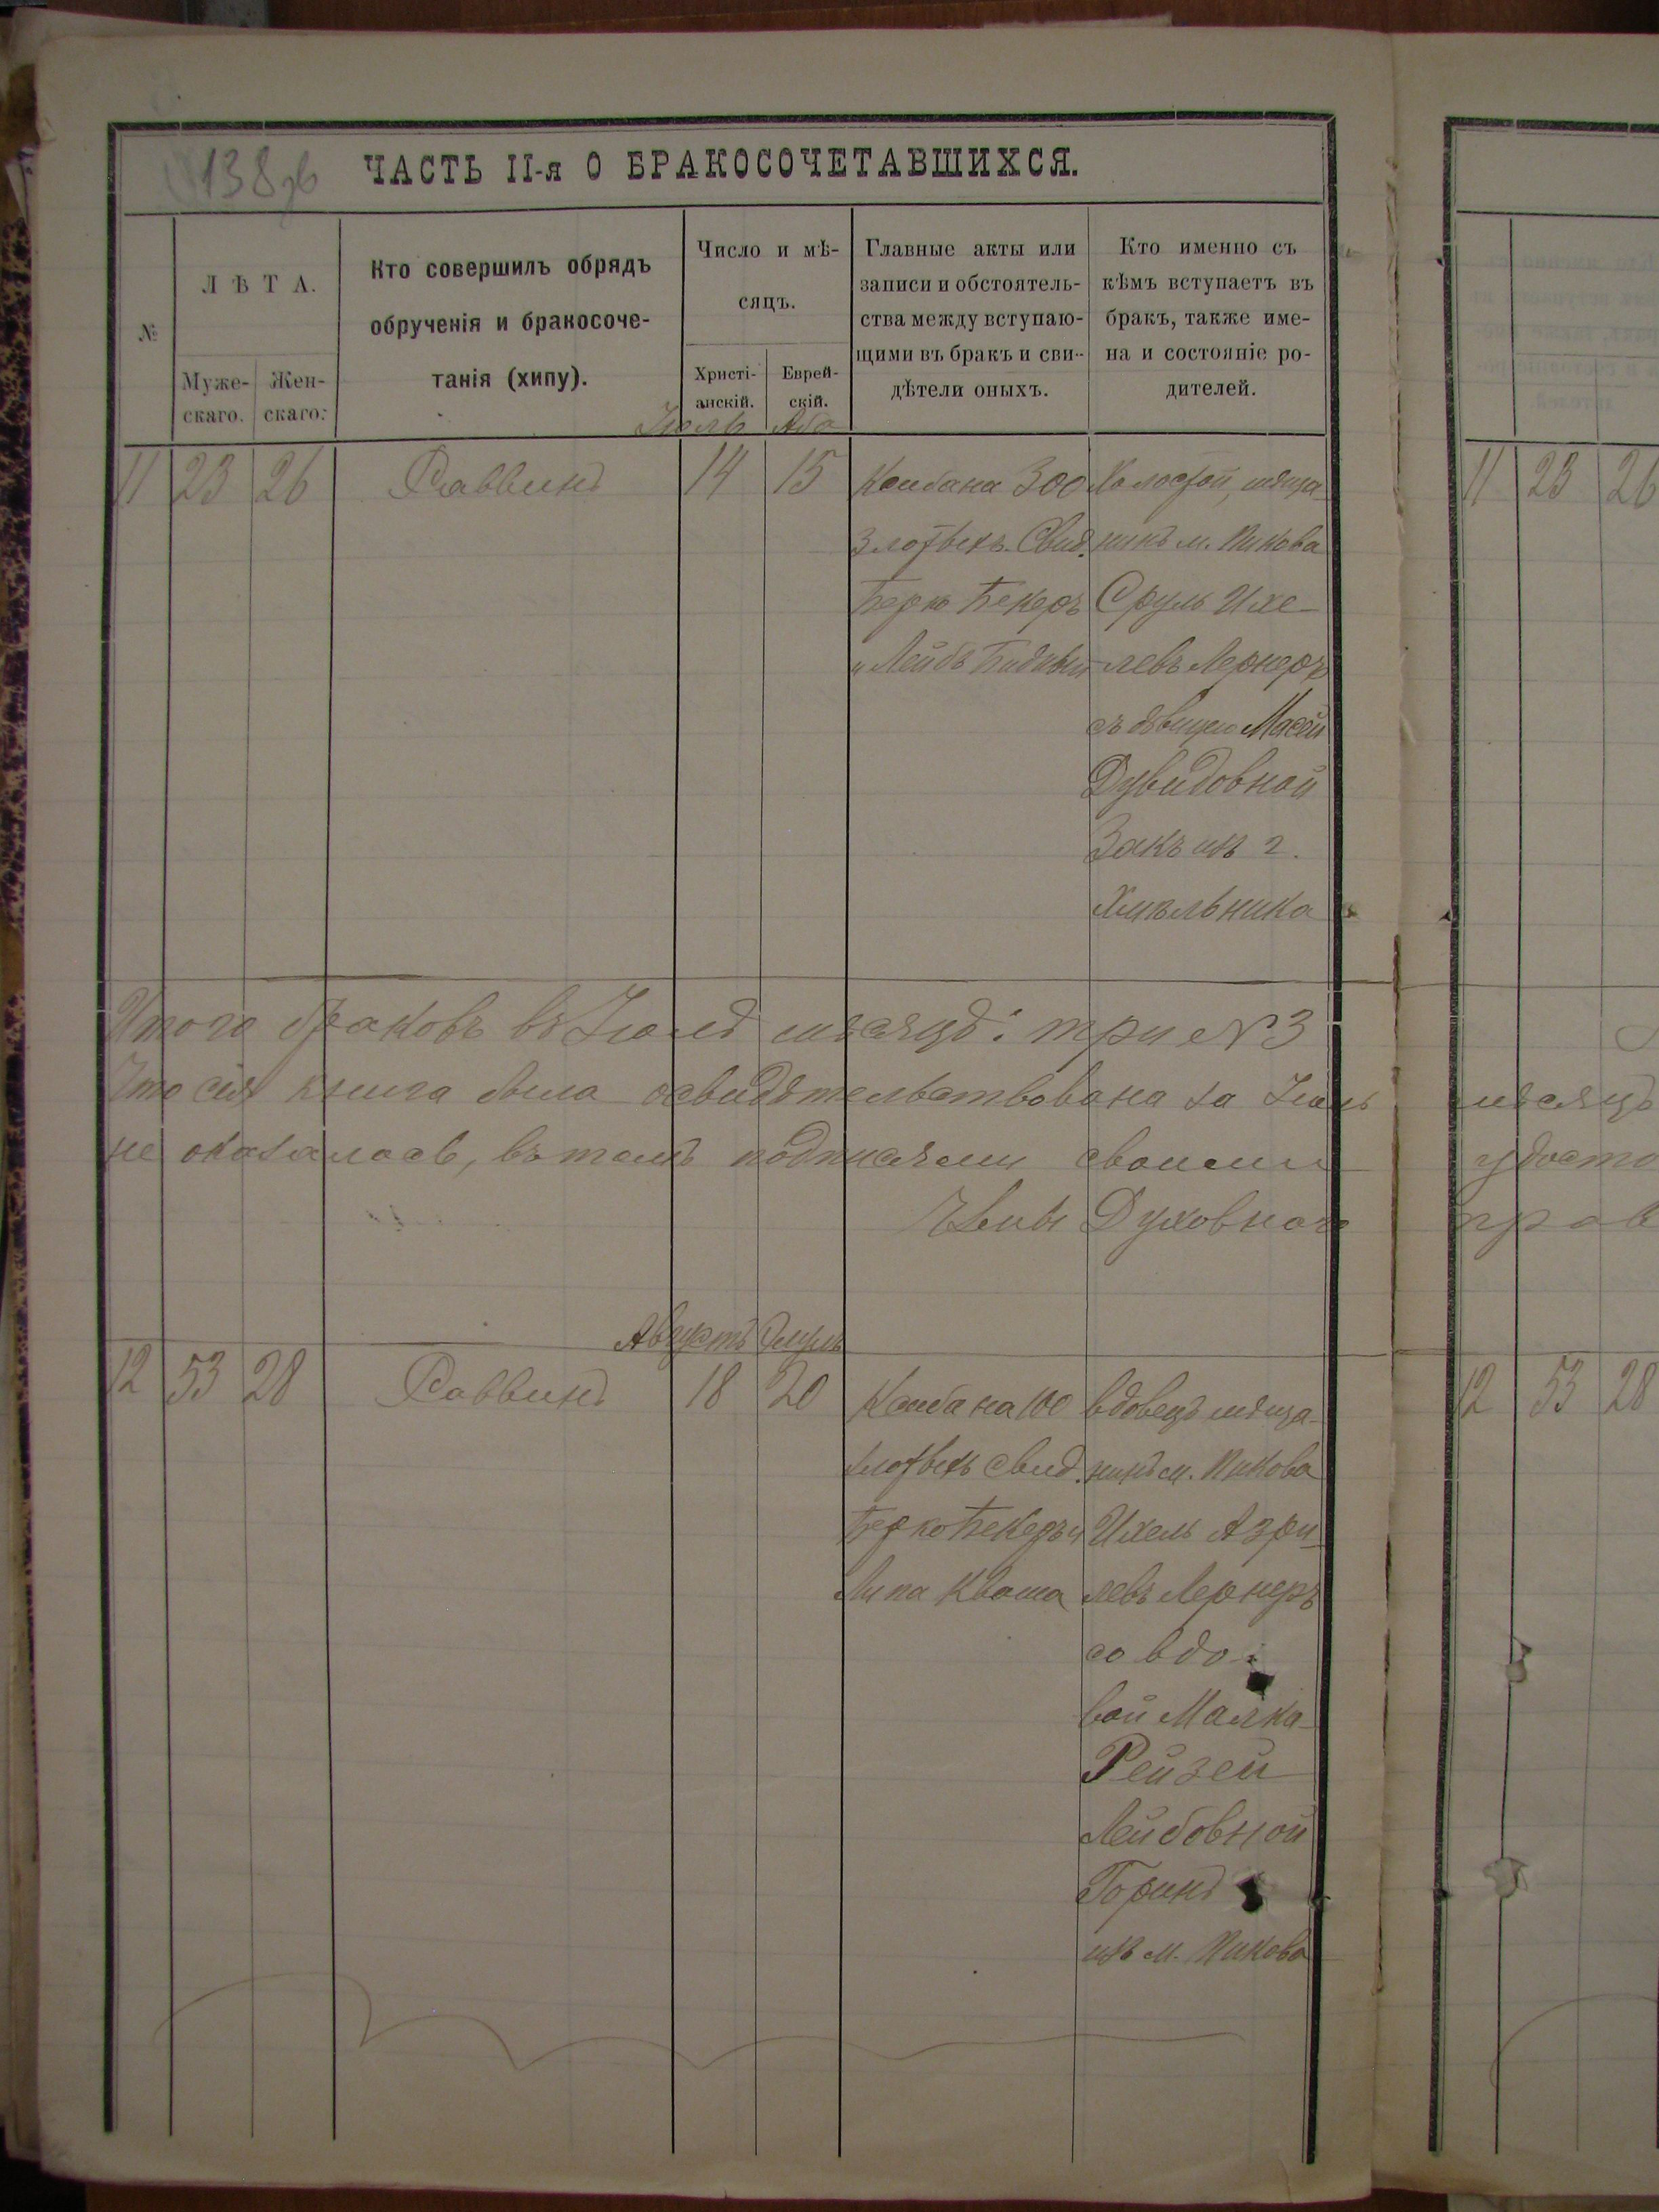 138 об
ЧАСТЬ II-я О БРАКОСОЧЕТАВШИХСЯ.
№
ЛѢТА.
Муже-
скаго.
Жен-
скаго.
Кто совершилъ обрядъ
обрученія и бракосоче-
танія (хипу).
Число и мѣ-
сяцъ.
Христі-
анскій.
Еврей-
скій.
Главные акты или
записи и обстоятель-
ства между вступаю-
щими въ бракъ и сви-
дѣтели оныхъ.
Кто именно съ
кѣмъ вступаетъ въ
бракъ, также име-
на и состояніе ро-
дителей.
Іюль Аба
11 23 26 Раввинъ 14 15
Ксиба на 300
злотыхъ. Свид.
Берко Бекеръ
и Лейбъ
Холостой, мѣща-
нинъ м. Пикова
Сруль Ихе-
левъ Лернеръ
съ дѣвицею Масей
Дувидовной
Закъ изъ г.
Хмѣльника
Итого браковъ въ Іюлѣ мѣсяцѣ: три №3
Что сія книга была освидѣтельствована за Іюль мѣсяцъ
не оказалось, въ томъ подписями своими удосто
Члены Духовнаго прав
Августъ Элулъ
12 53 28 Раввинъ 18 20
Ксиба на 100
злотыхъ Свид.
Берко Бекеръ и
Липа Кваша
вдовецъ мѣща-
нинъ м. Пикова
Ихель Азри-
левъ Лернеръ
со вдо-
вой Малка-
Рейзей
Лейбовной
Горинъ
изъ м. Пикова
11 23 26
12 53 28